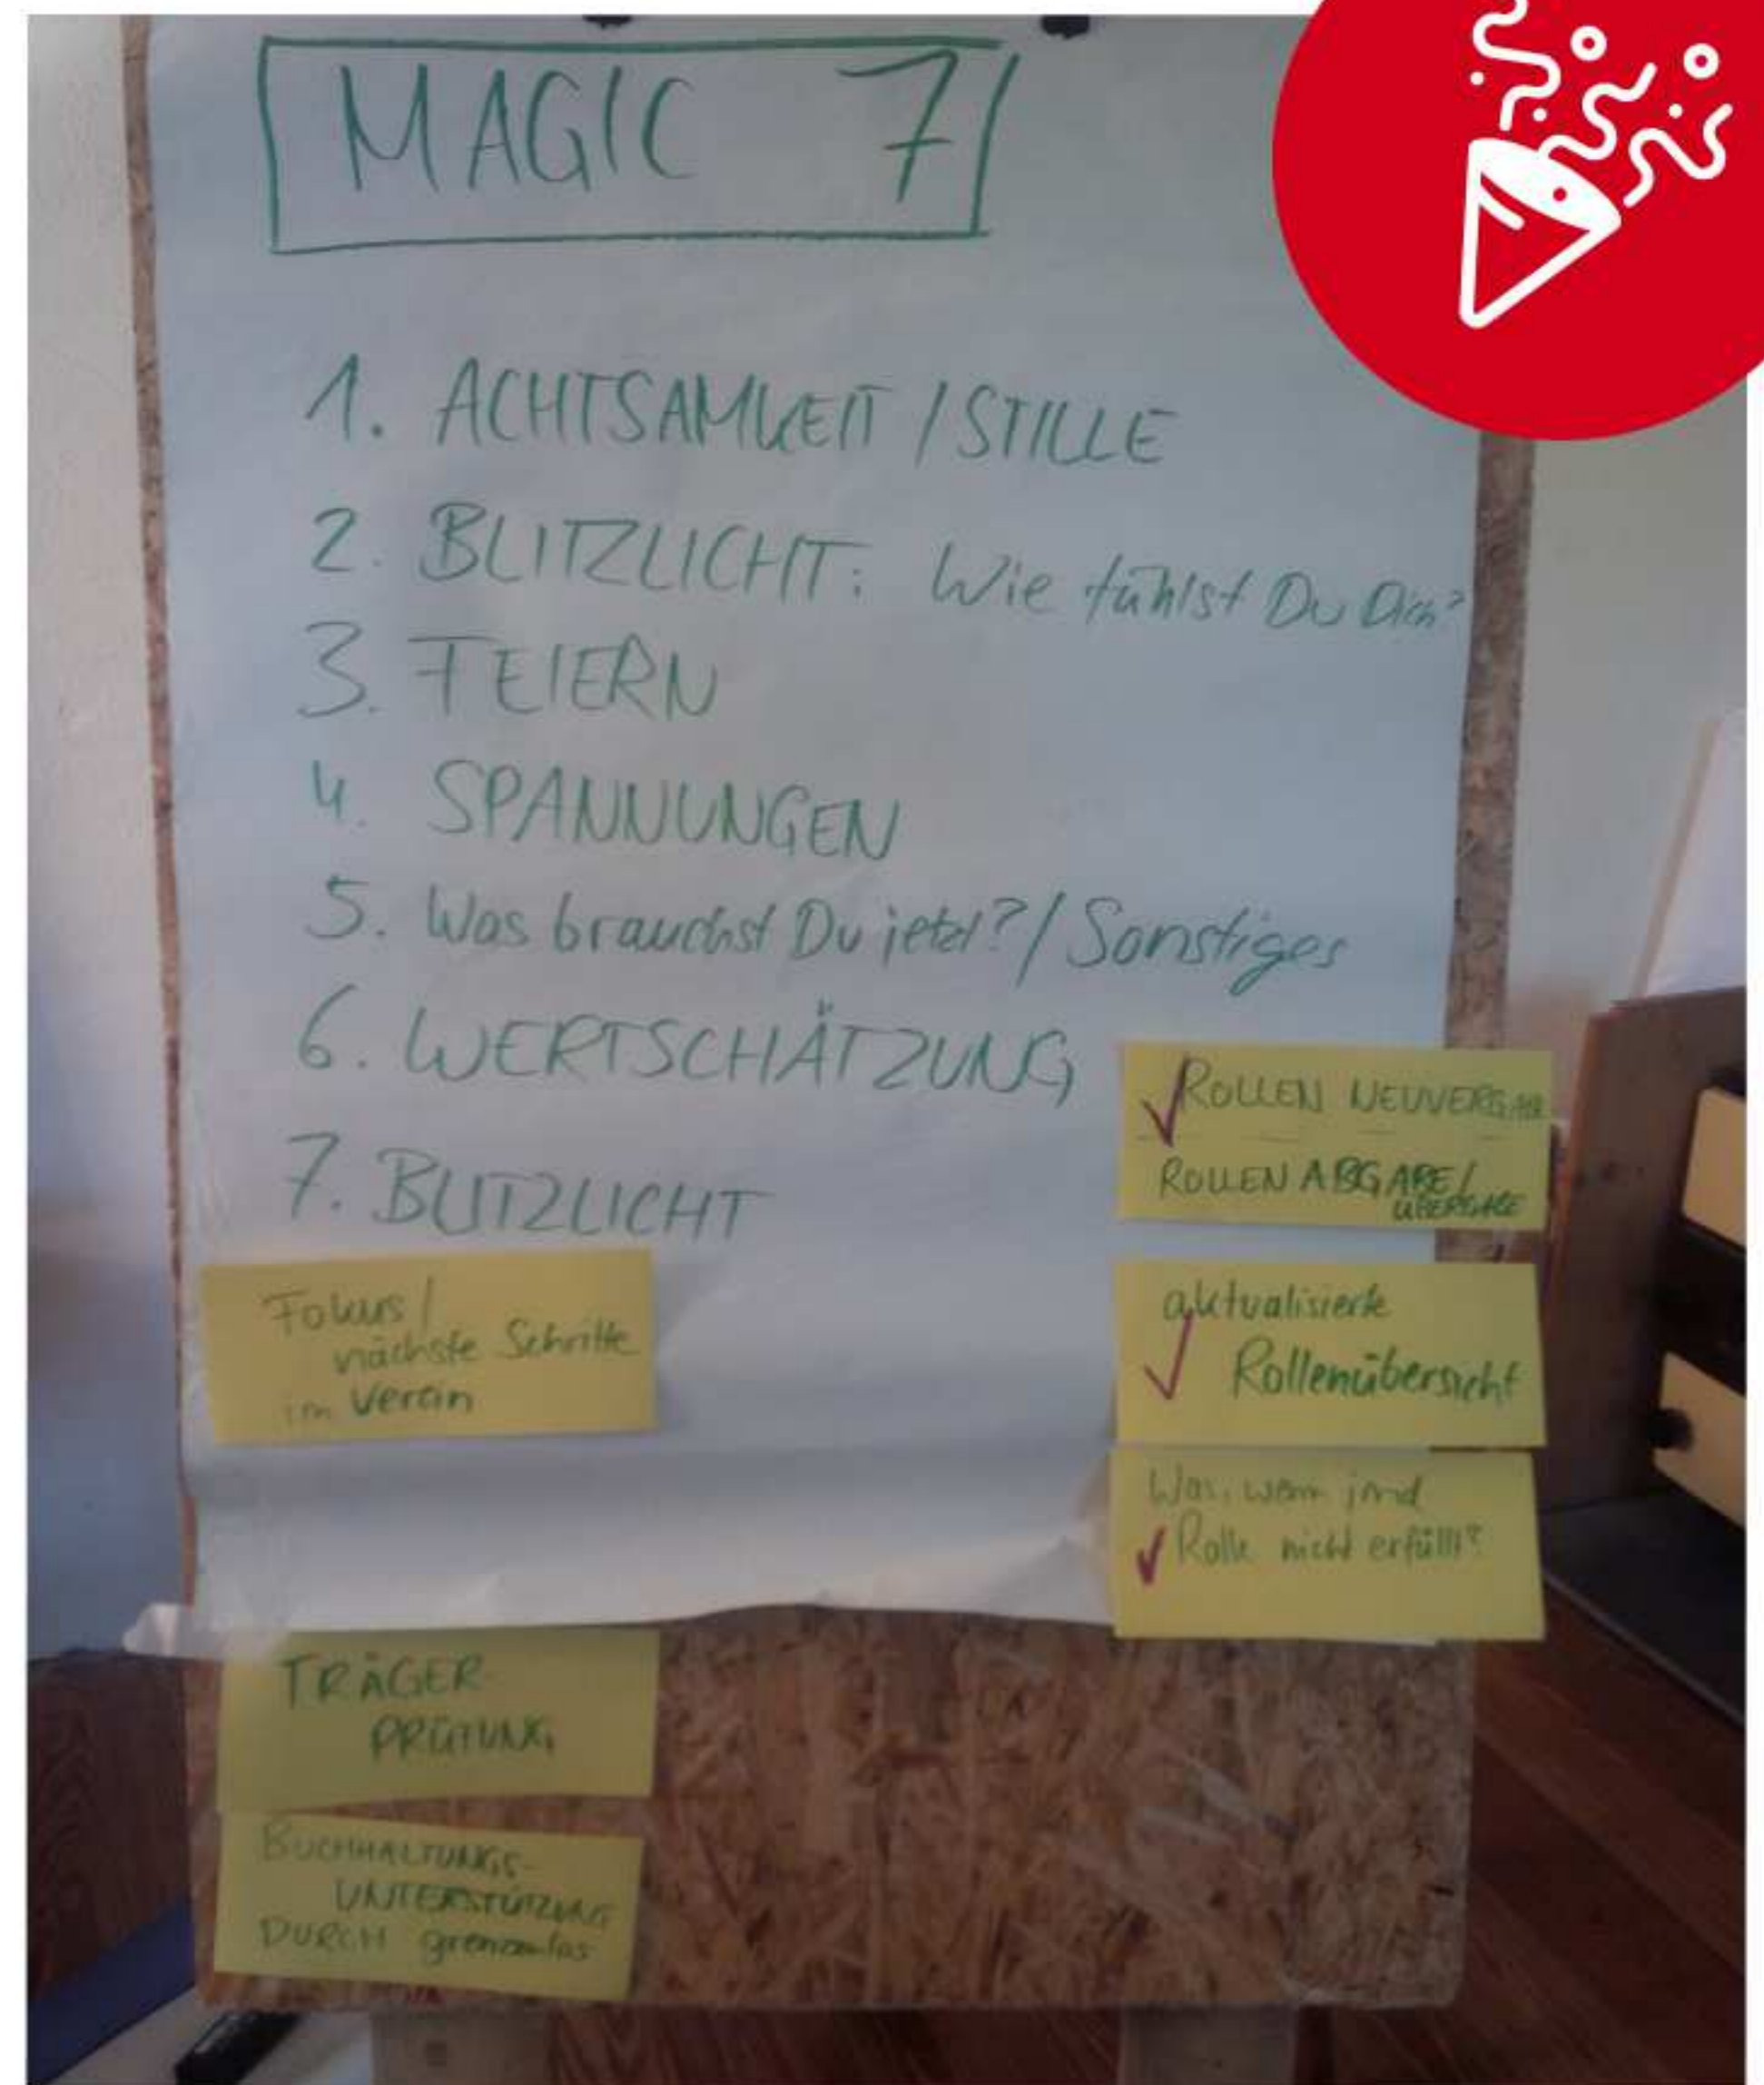 MAGIC 7
1. ACHTSAMKEIT / STILLE
2. BLITZLICHT: Wie fühlst Du Dich?
3. FEIERN
4. SPANNUNGEN
5. Was brauchst Du jetzt? / Sonstiges
6. WERTSCHÄTZUNG
7. BLITZLICHT
ROLLEN NEUVERGABE
ROLLEN ABGABE/
ÜBERGABE
Fokus/
nächste Schritte
im Verein
aktualisierte
Rollenübersicht
Was, wenn jmd
Rolle nicht erfüllt?
TRÄGER-
PRÜFUNG
BUCHHALTUNGS-
UNTERSTÜTZUNG
DURCH grenzenlos